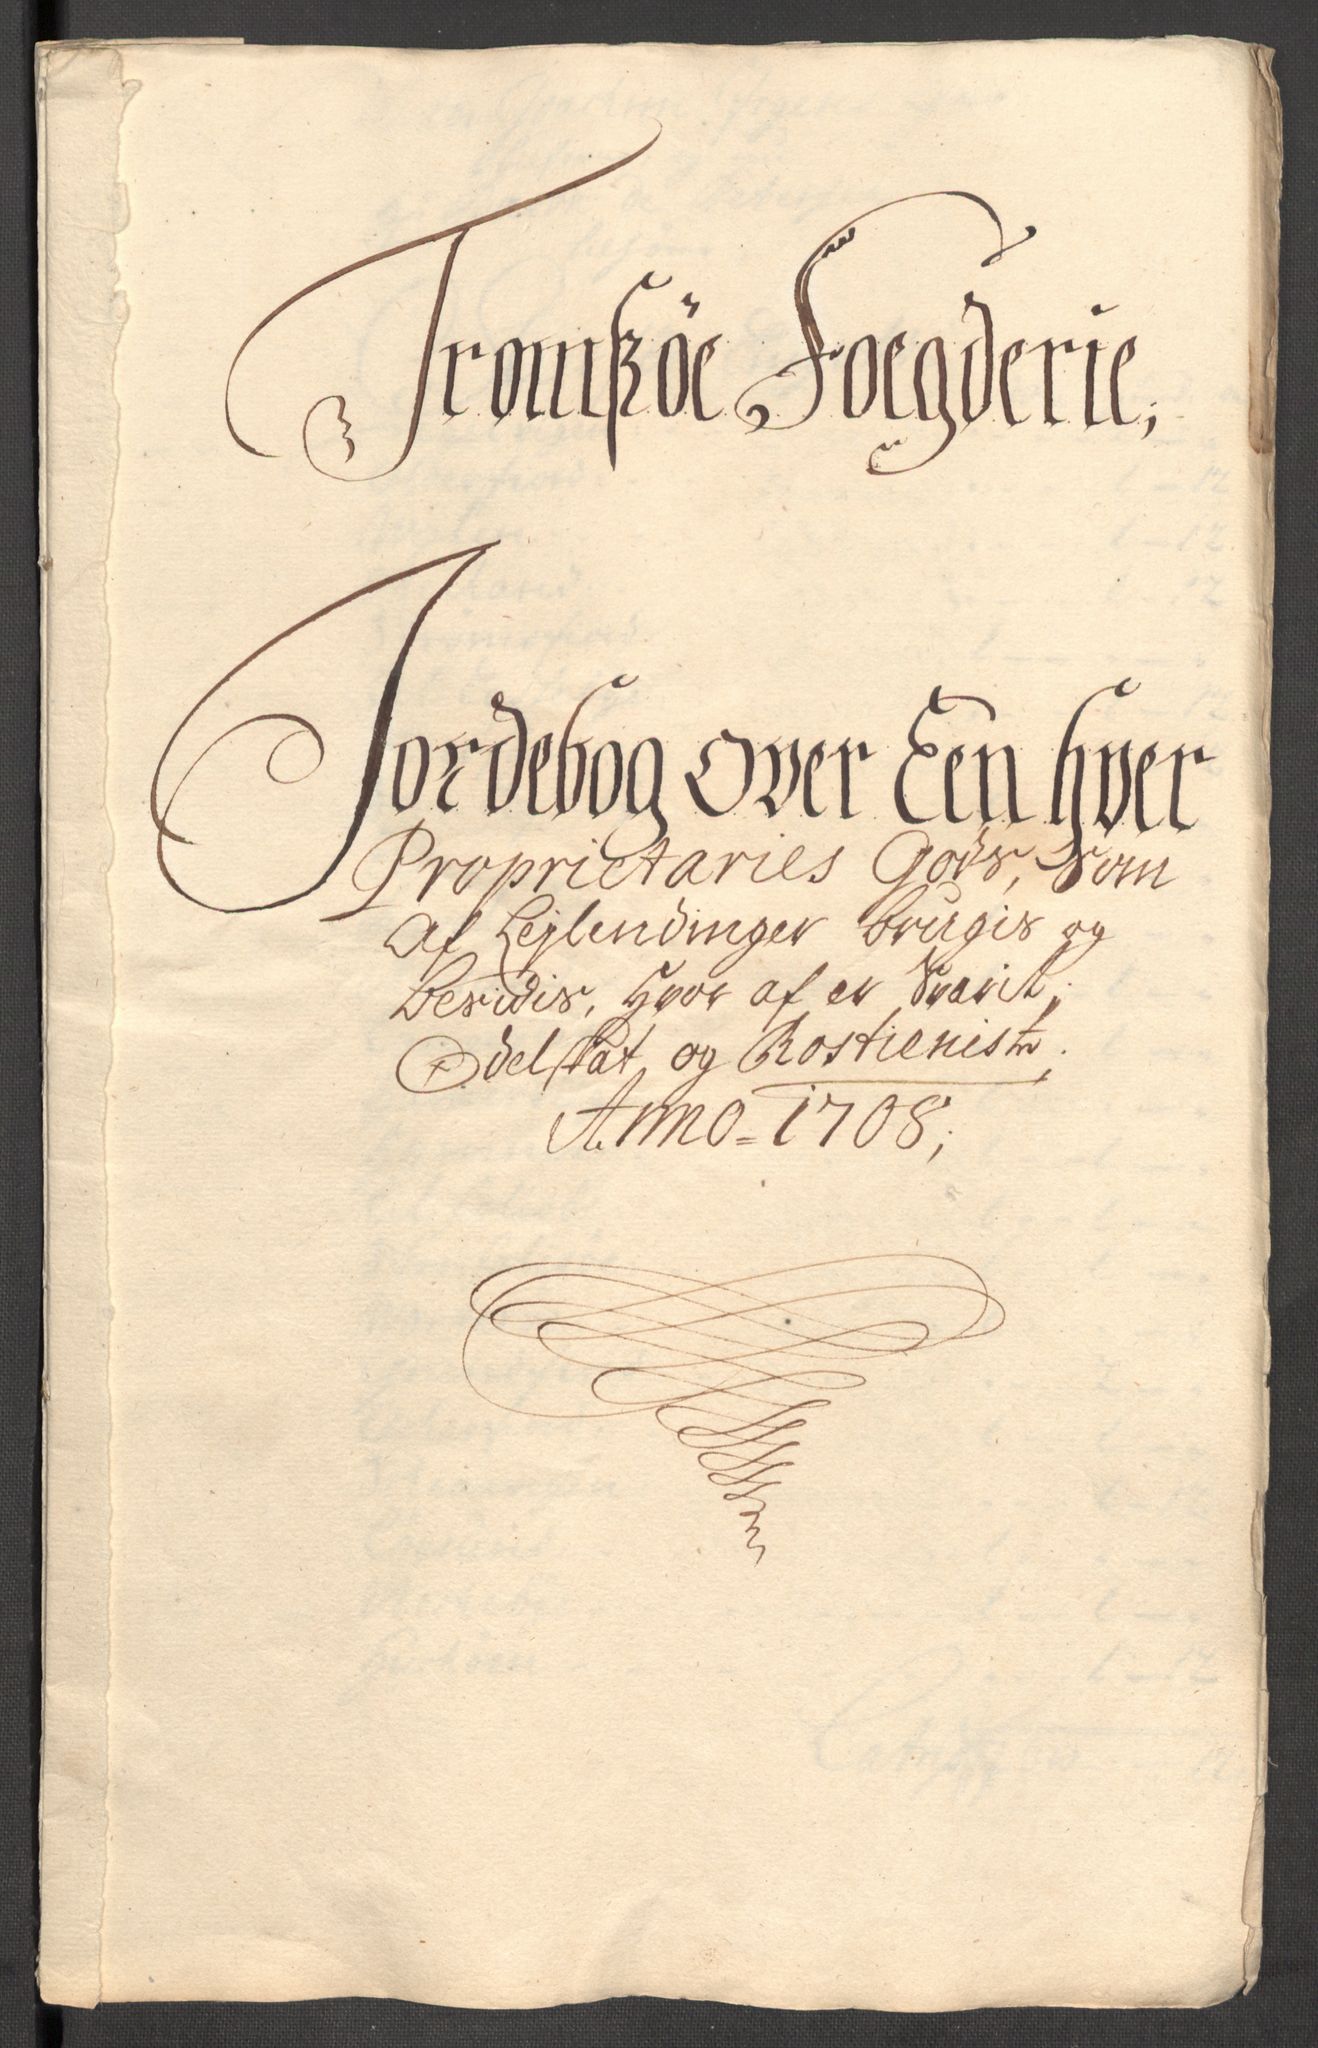 Tromßöe Foegderie,
Jordebog Over Een hver
Proprietaries Gods, som
af Lejlendinger brugis og
besidis, Hvor af er Svarit,
Odelskat og Rostienist,
Anno 1708,